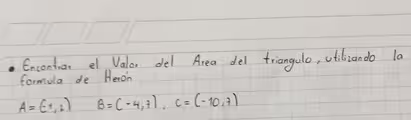 • Encontrar el Valor del Area del triangulo, utilizando la
formula de Herón
A=(-1,2) B=(-4,7), C=(-10,7)